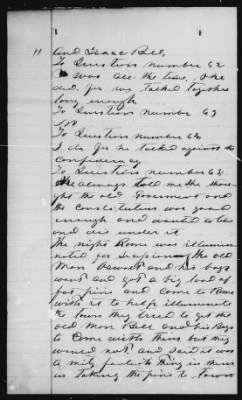 11 and Isaac Bell.
To Question number 62
was all the time, she
did. for we talked together
long enough
To Question number 63
No
To Question number 64
I do for he talked against the
confederacy
To Question number 65
He always told me she thou-
ght the old Government and
the constitution was good
enough and wanted to live
and die under it
The night Rome was illumin
nated for the old
Man and his boys
went and got a big load of
fat pine and come to Rome
with it to help illuminate
the town they tried to get the
old Man Bell and his Boys
to come with them but they
would not and said it was
a mity foolish thing in them
in taking the pine to town